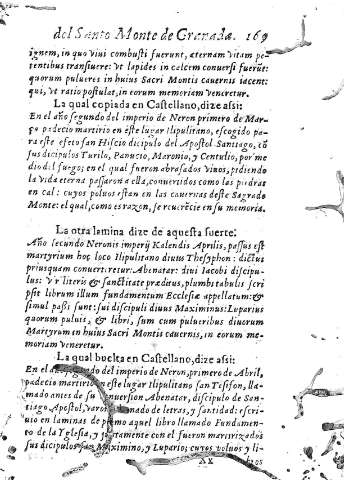 del Santo Monte de Granada. 169
ignem, in quo viui combusti fuerunt, æternam vitam pe-
tentibus transiuere: vt lapides in calcem conuersi fuere:
quorum pulueres in huius Sacri Montis cauernis iacent:
qui, vt ratio postulat, in eorum memoriam veneretur.
La qual copiada en Castellano, dize assi:
En el año segundo del imperio de Neron primero de Mar-
ço padecio martirio en este lugar Ilipulitano, escogido pa-
ra este efeto san Hiscio dicipulo del Apostol Santiago, cõ
sus dicipulos Turilo, Panucio, Maronio, y Centulio, por me
dio del fuego; en el qual fueron abrasados viuos, pidiendo
la vida eterna passaron a ella, conuertidos como las piedras
en cal: cuyos poluos estan en las cauernas deste Sagrado
Monte: el qual, como es razon, se reuerẽcie en su memoria.
La otra lamina dize de aquesta suerte:
Año secundo Neronis imperij Kalendis Aprilis, passus est
martyrium hoc loco Ilipulitano diuus Thesyphon: dictus
priusquam conuerteretur. Abenatar: diui Iacobi discipu-
lus: Vir literis & sanctitate præditus, plumbi tabulis scri
psit librum illum fundamentum Ecclesiæ appellatum: &
simul passi sunt: sui discipuli diuus Maximinus: Luparius
quorum puluis, & libri, sum cum pulueribus diuorum
Martyrum in huius Sacri Montis cauernis, in eorum me-
moriam veneretur.
La qual buelta en Castellano, dize assi:
En el segundo del imperio de Neron, primero de Abril,
padecio martirio en este lugar Ilipulitano san Tesifon, lla-
mado antes de su conuersion Abenatar, discipulo de San-
tiago Apostol, varon de letras, y santidad: escri-
uio en laminas de plomo aquel libro llamado Fundamen-
to de la Yglesia, y juntamente con el fueron martirizados
sus dicipulos Maximino, y Lupario; cuyos poluos y li-
XX